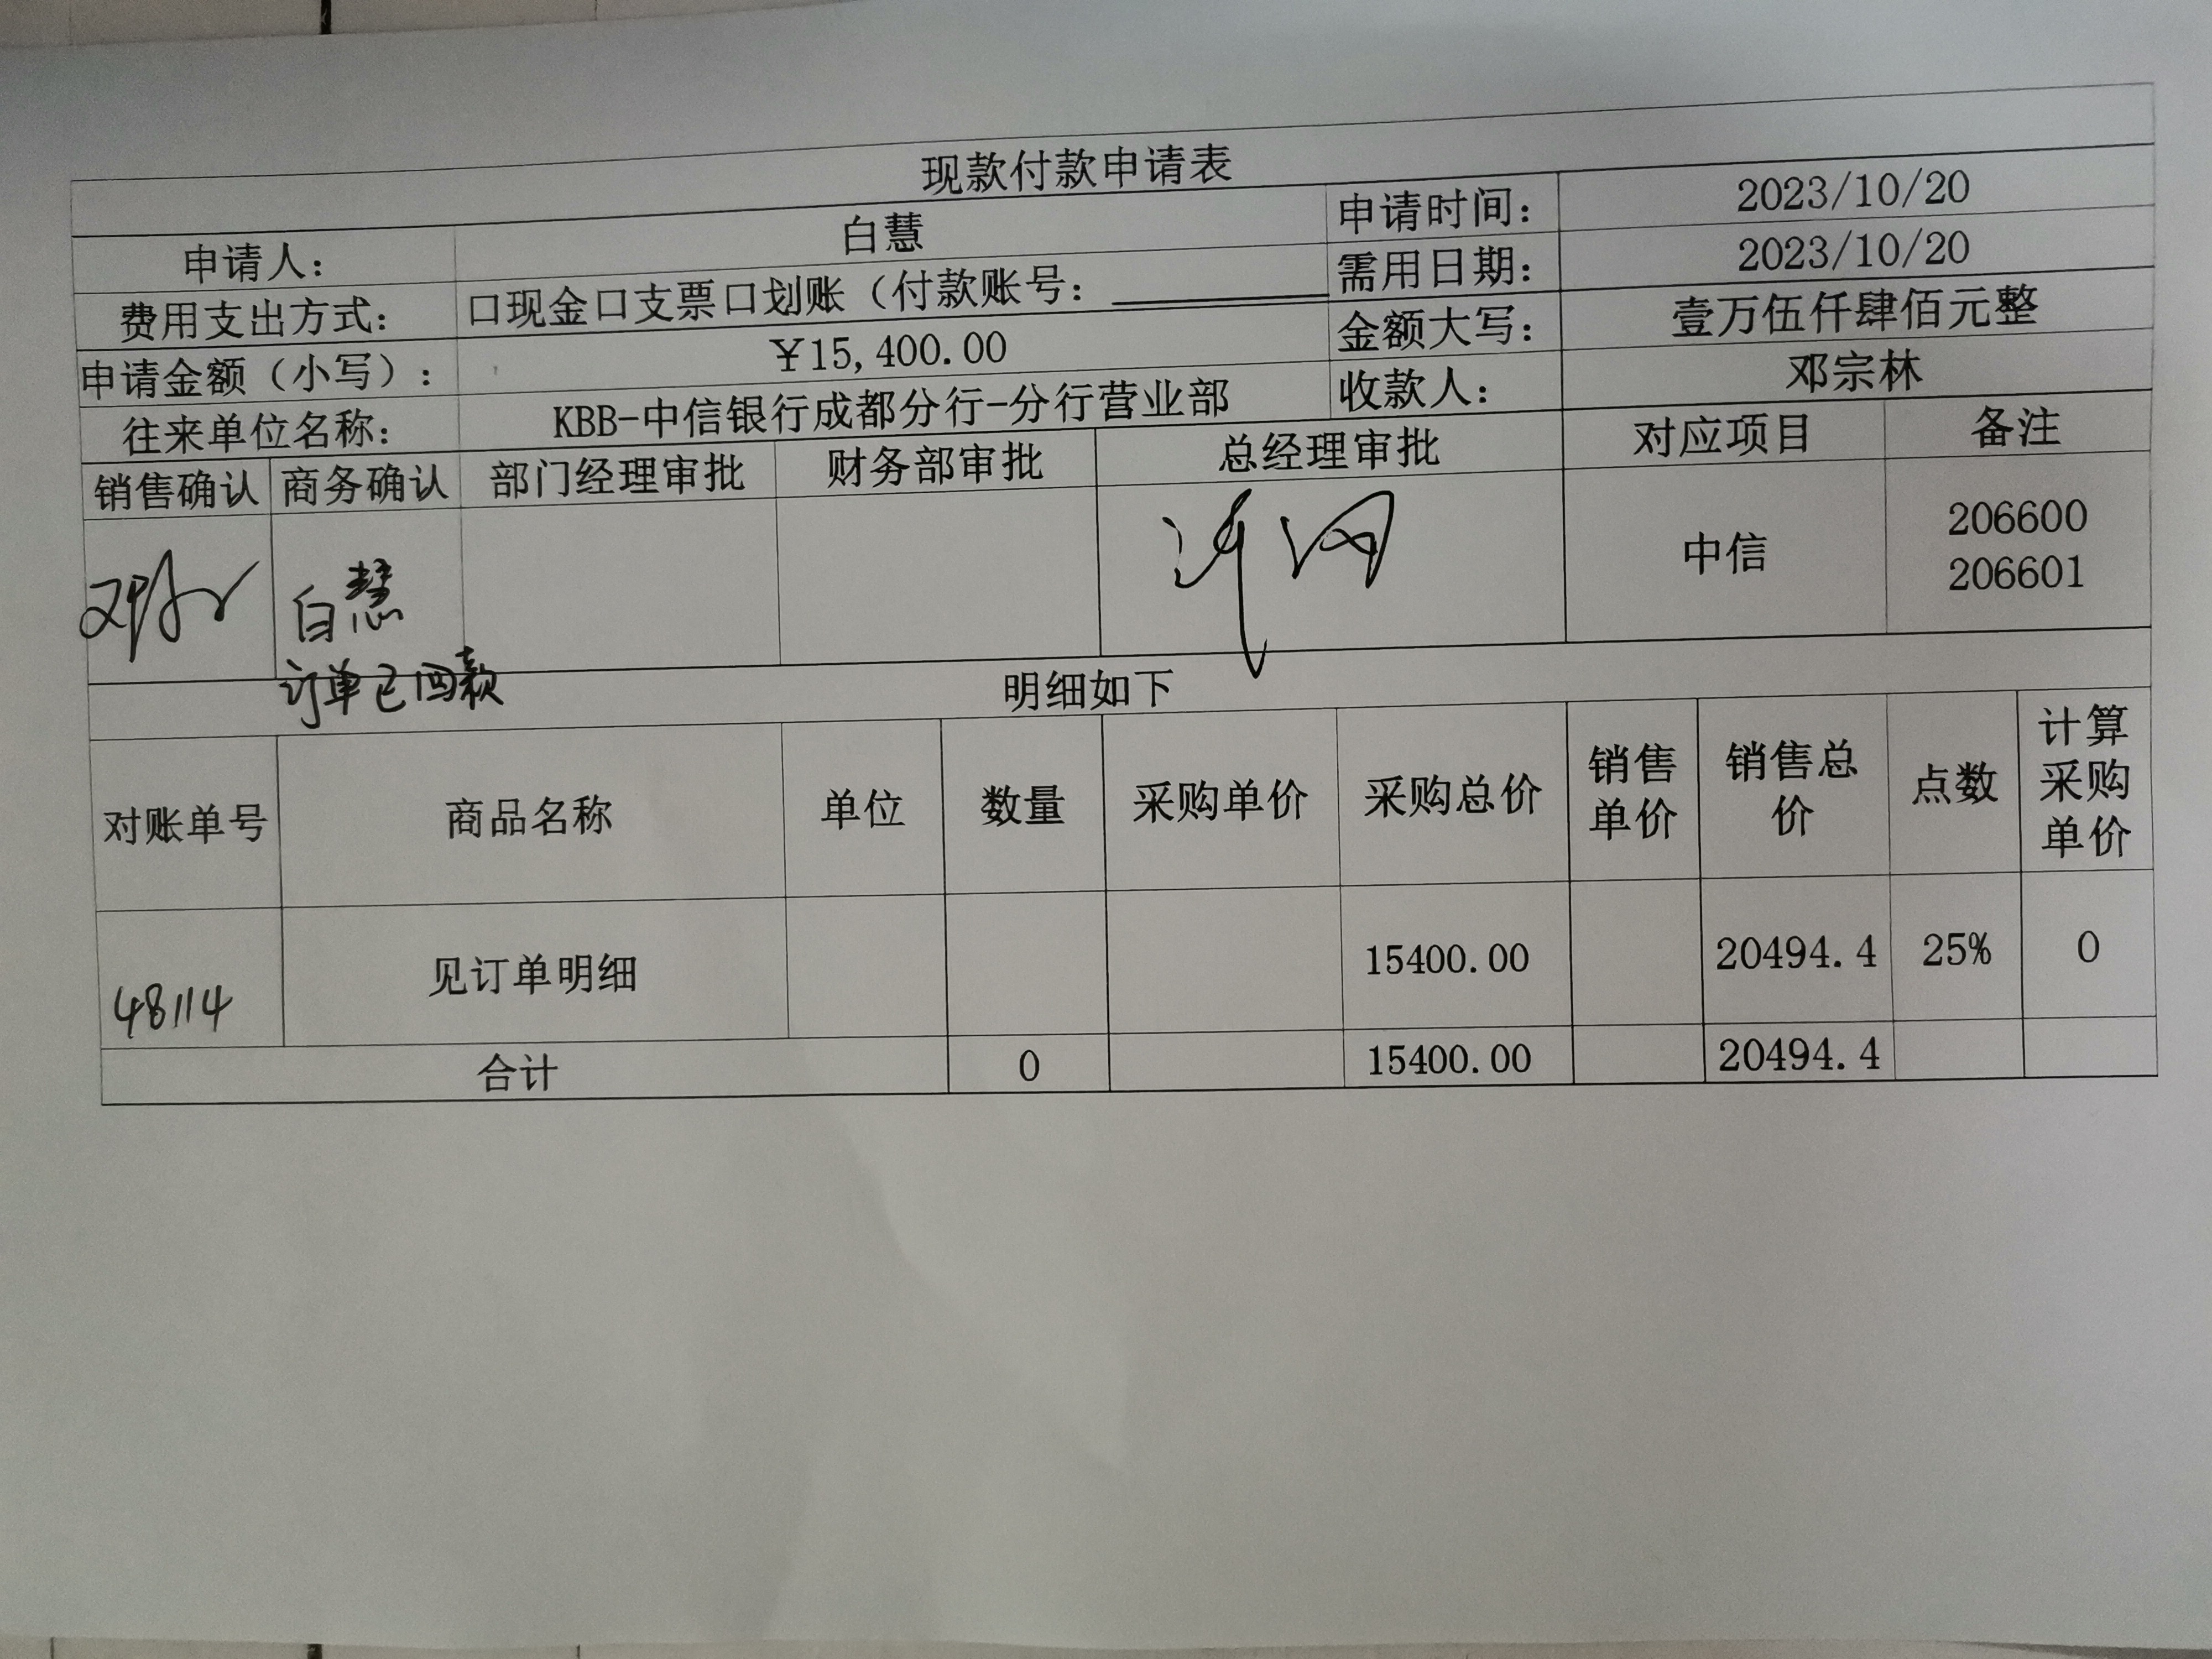 现款付款申请表
申请人： 白慧 申请时间： 2023/10/20
费用支出方式： 口现金口支票口划账（付款账号： 需用日期： 2023/10/20
申请金额（小写）： ¥15,400.00 金额大写： 壹万伍仟肆佰元整
往来单位名称： KBB-中信银行成都分行-分行营业部 收款人： 邓宗林
销售确认 商务确认 部门经理审批 财务部审批 总经理审批 对应项目 备注
白慧 中信 206600
206601
订单已回款
明细如下
对账单号 商品名称 单位 数量 采购单价 采购总价 销售单价 销售总价 点数 计算采购单价
48114 见订单明细 15400.00 20494.4 25% 0
合计 0 15400.00 20494.4